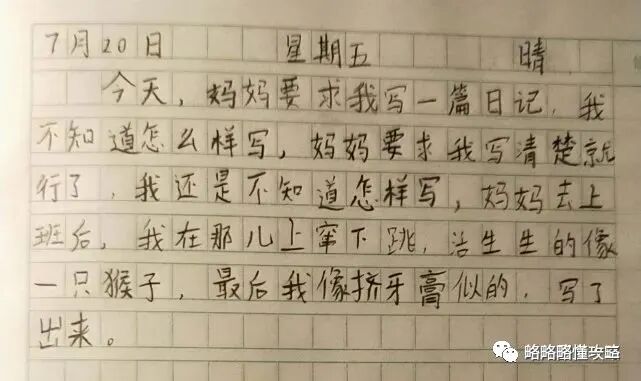 7月20日 星期五 晴
今天，妈妈要求我写一篇日记，我
不知道怎么样写，妈妈要求我写清楚就
行了，我还是不知道怎样写，妈妈去上
班后，我在那儿上窜下跳，活生生的像
一只猴子，最后我像挤牙膏似的，写了
出来。
略略略懂攻略